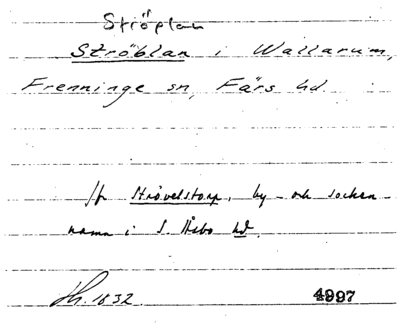 Ströplan
Ströblan i Wallarum,
Frenninge sn, Färs hd.
jfr Strövelstorp, by- och socken-
namn i S. Åsbo hd.
1832. 4997